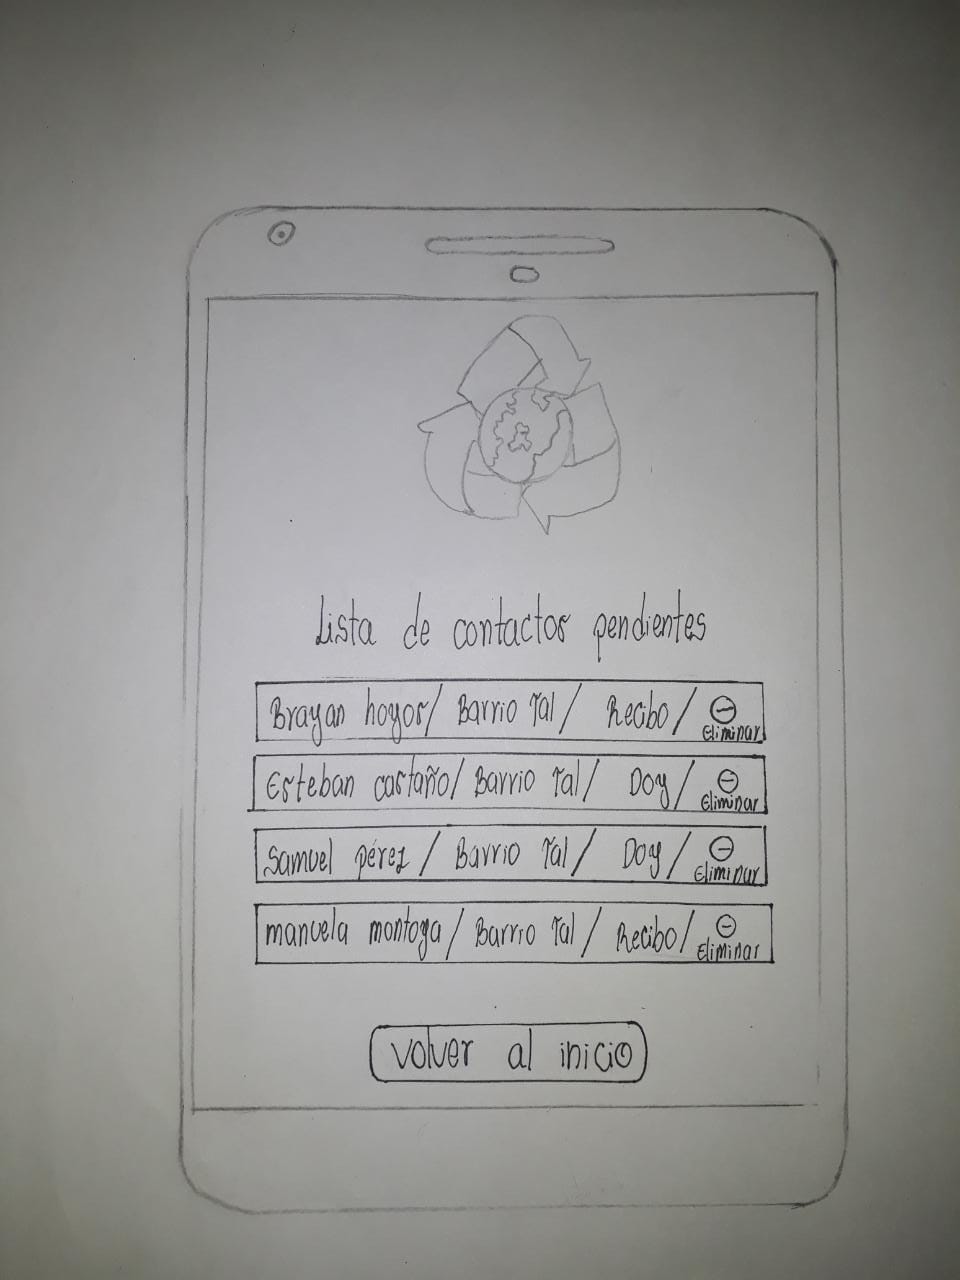 Lista de contactos pendientes
Brayan hoyos/ Barrio Tal/ Recibo/ Eliminar
Esteban castaño/ Barrio Tal/ Doy/ Eliminar
Samuel pérez/ Barrio Tal/ Doy/ Eliminar
manuela montoya/ Barrio Tal/ Recibo/ Eliminar
volver al inicio